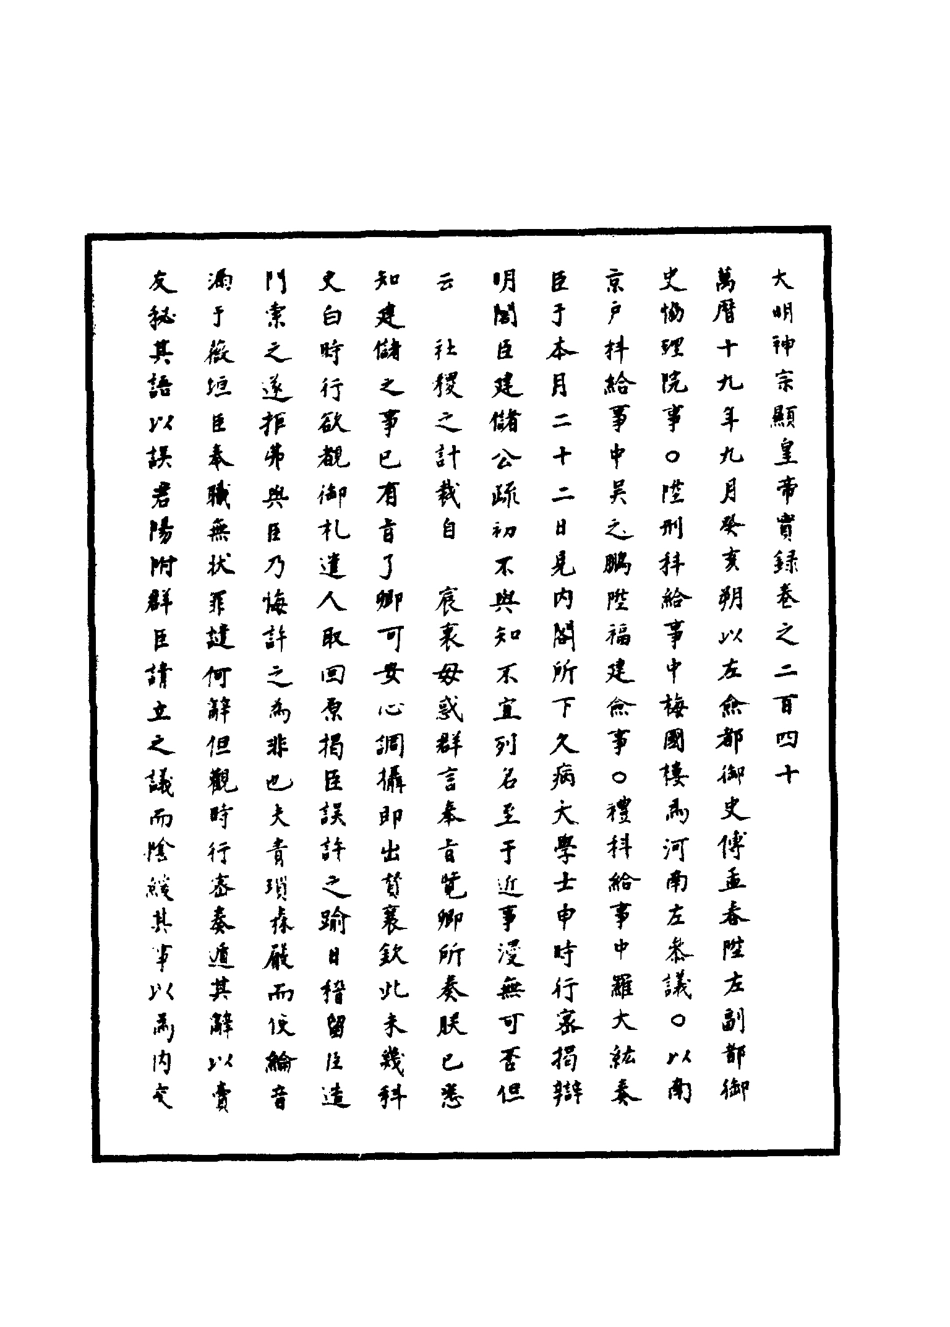 大明神宗顯皇帝實録卷之二百四十
萬曆十九年九月癸亥朔以左僉都御史傅孟春陞左副都御
史協理院事○陞刑科給事中梅國樓為河南左叅議○以南
京户科給事中吳之鵬陞福建僉事○禮科給事中羅大紘奏
臣于本月二十二日見内閣所下久病大學士申時行密揭辯
明閣臣建儲公疏初不與知不宜列名至于近事漫無可否但
云　社稷之計裁自　宸衷毋惑群言奉旨覽卿所奏朕已悉
知建儲之事已有旨了卿可安心調攝即出贊襄欽此未幾科
史白時行欲觀御札遣人取回原揭臣誤許之踰日稽留臣造
門索之遂拒弗與臣乃悔許之為非也夫青瑣森嚴而使綸音
漏于薇垣臣奉職無状罪譴何辭但觀時行密奏遁其辭以賣
友秘其語以誤君陽附群臣請立之議而陰緩其事以為内交